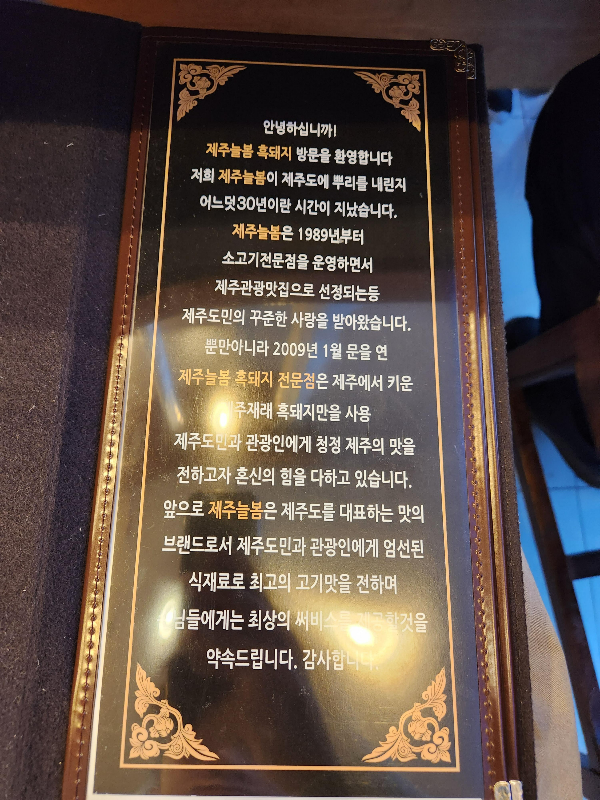 안녕하십니까!
제주늘봄 흑돼지 방문을 환영합니다
저희 제주늘봄이 제주도에 뿌리를 내린지
어느덧30년이란 시간이 지났습니다.
제주늘봄은 1989년부터
소고기전문점을 운영하면서
제주관광맛집으로 선정되는등
제주도민의 꾸준한 사랑을 받아왔습니다.
뿐만아니라 2009년 1월 문을 연
제주늘봄 흑돼지 전문점은 제주에서 키운
흑돼지만을 사용
제주도민과 관광인에게 청정 제주의 맛을
전하고자 혼신의 힘을 다하고 있습니다.
앞으로 제주늘봄은 제주도를 대표하는 맛의
브랜드로서 제주도민과 관광인에게 엄선된
식재료로 최고의 고기맛을 전하며
최상의
약속드립니다. 감사합니다.